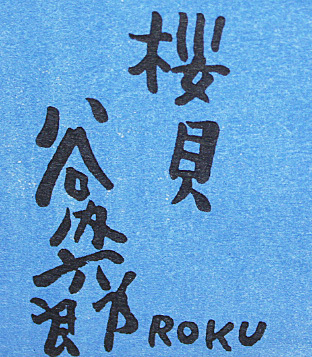 櫻貝
谷内六郎
ROKU